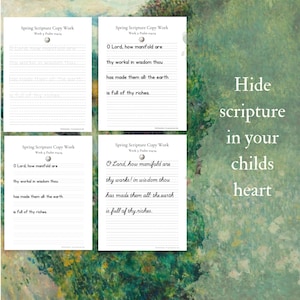 Spring Scripture Copy Work
Spring Scripture Copy Work
O Lord, how manifold are
thy works! in wisdom thou
has made them all: the earth
is full of thy riches.
Spring Scripture Copy Work
O Lord, how manifold are
thy works! in wisdom thou
has made them all: the earth
is full of thy riches.
Spring Scripture Copy Work
O Lord, how manifold are
thy works! in wisdom thou
has made them all: the earth
is full of thy riches.
Hide
scripture
in your
childs
heart